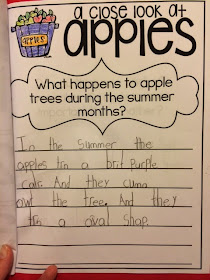 a close look at
apples
apples
What happens to apple
trees during the summer
months?
In the Summer the
apples trn a brit purple
calr. And they cumg
owt the tree. And they
trn a oval shap.